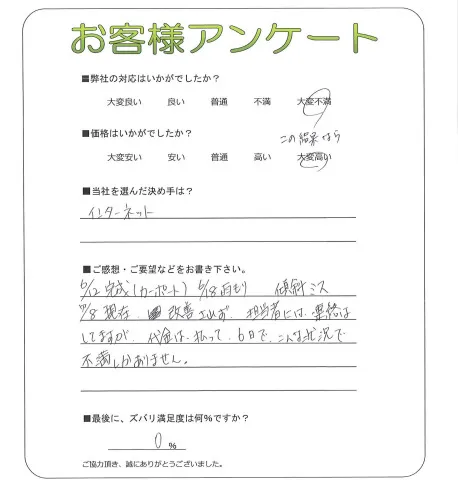 お客様アンケート
■弊社の対応はいかがでしたか？
大変良い 良い 普通 不満 大変不満
■価格はいかがでしたか？
この結果なら
大変安い 安い 普通 高い 大変高い
■当社を選んだ決め手は？
インターネット
■ご感想・ご要望などをお書き下さい。
6/12 完成(カーポート) 6/18雨もり 傾斜ミス
10/8 現在 改善されず、担当者には、連絡は
してますが、代金は、払って、6日で、こんな状況で
不満しかありません。
■最後に、ズバリ満足度は何％ですか？
0 %
ご協力頂き、誠にありがとうございました。